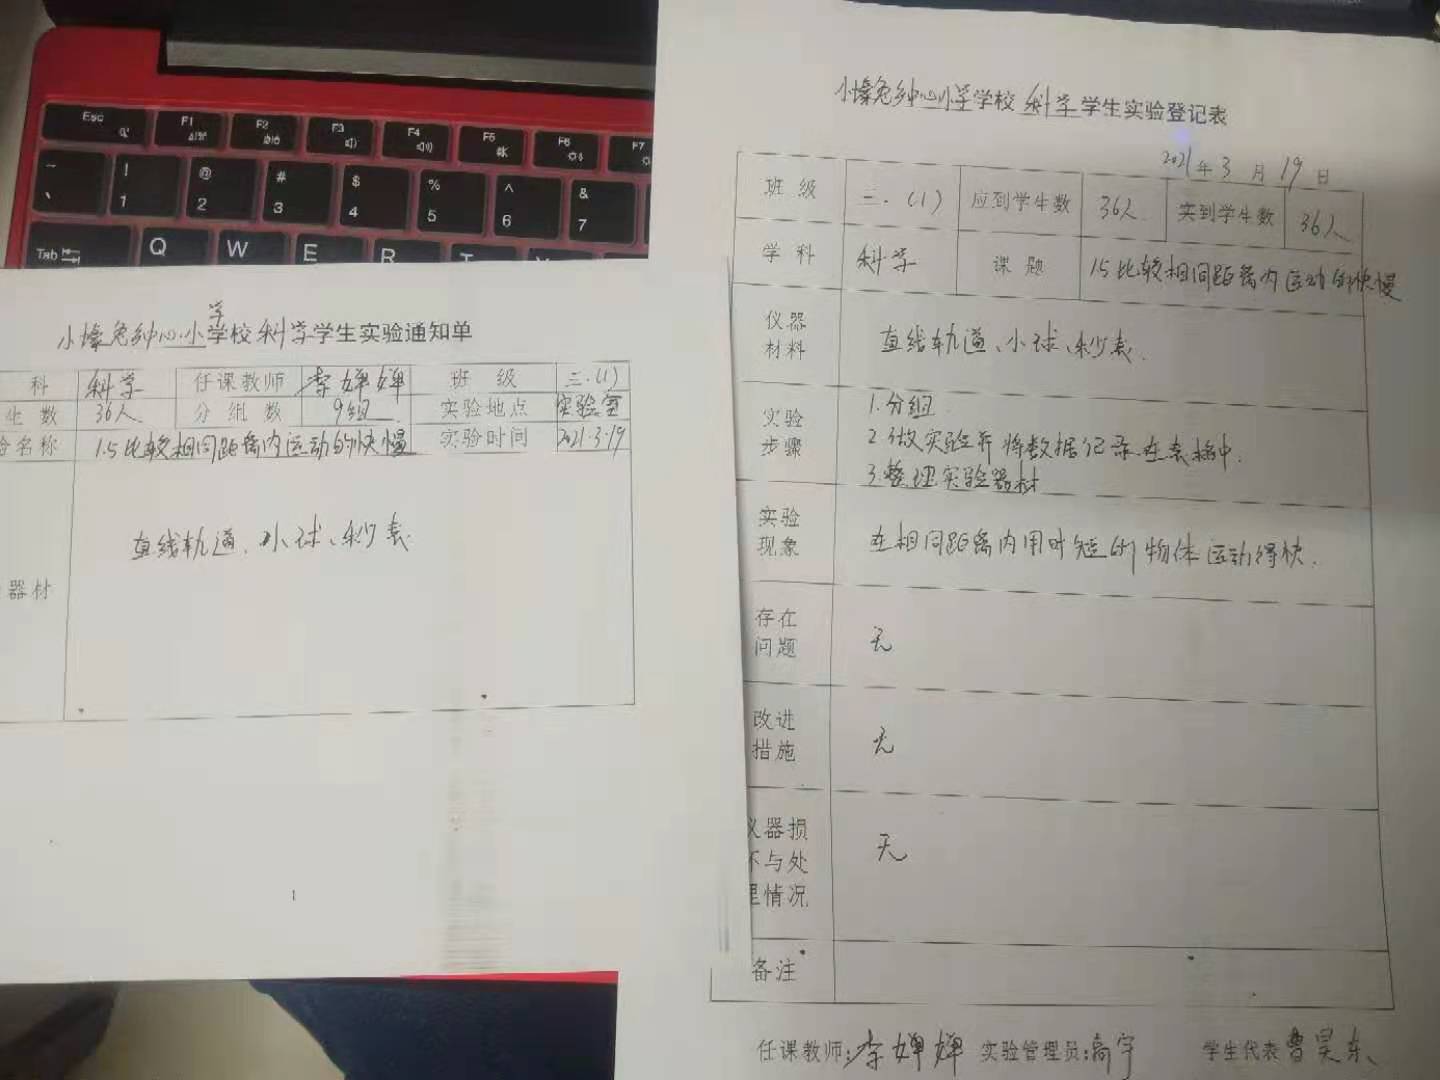 Esc F1 F2 F3 F4 F5 F6 F7
~ ! @ # $ % ^ &
` 1 2 3 4 5 6 7
Tab Q W E R T
小壕兔乡中心小学学校科学学生实验通知单
科 科学 任课教师 李婵婵 班级 三.(1)
生数 36人 分组数 9组 实验地点 实验室
名称 1.5比较相同距离内运动的快慢 实验时间 2021.3.19
器材 直线轨道、小球、秒表
1
小壕兔乡中心小学学校 科学 学生实验登记表
2021年3月19日
班级 三.(1) 应到学生数 36人 实到学生数 36人
学科 科学 课题 1.5比较相同距离内运动的快慢
仪器材料 直线轨道、小球、秒表.
实验步骤 1.分组
2.做实验并将数据记录在表格中.
3.整理实验器材
实验现象 在相同距离内用时短的物体运动得快.
存在问题 无
改进措施 无
仪器损坏与处理情况 无
备注
任课教师:李婵婵 实验管理员: 学生代表 曹昊东